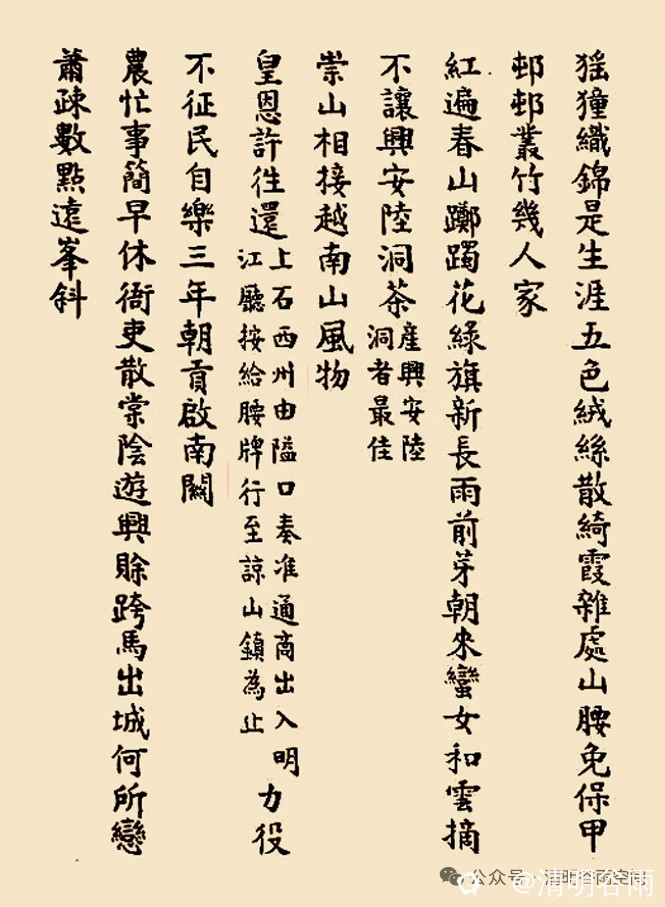 猺獞織錦是生涯五色絨絲散綺霞雜處山腰免保甲
邨邨叢竹幾人家
紅遍春山躑躅花綠旗新長雨前芽朝來蠻女和雲摘
不讓興安陸洞茶
產興安陸
洞者最佳
崇山相接越南山風物
皇恩許徃還
上石西州由隘口奏准通商出入明
江廳按給腰牌行至諒山鎮為止
力役
不征民自樂三年朝貢啟南闗
農忙事簡早休衙吏散棠陰遊興賒跨馬出城何所戀
蕭疎數點遠峯斜
公众号·清明谷雨空间
@清明谷雨